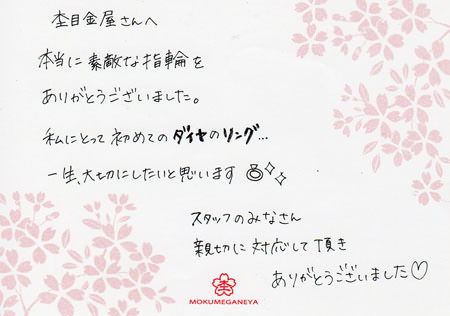 杢目金屋さんへ
本当に素敵な指輪を
ありがとうございました。
私にとって初めてのダイヤのリング…
一生、大切にしたいと思います
スタッフのみなさん
親切に対応して頂き
ありがとうございました♡
MOKUMEGANEYA